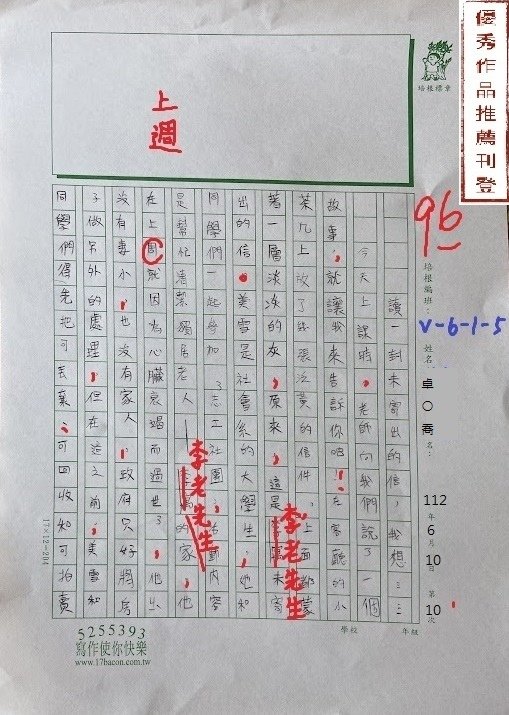 優秀作品推薦刊登
培根標章
96
培根編班：
V-6-1-5
姓名：
卓〇喬
112年6月10日 第10次
上週
讀一封未寄出的信，我想……
今天上課時，老師向我們說了一個
故事，就讓我來告訴你吧！在客廳的小
茶几上放了幾張泛黃的信件，上面都蒙
著一層淡淡的灰，原來，這是 未寄
李老先生
出的信。美雪是社會系的大學生，她和
同學們一起參加 志工社團，活動內容
是幫忙清潔獨居老人— 的家，他
李老先生
在上周就因為心臟衰竭而過世了，他
沒有妻小，也沒有家人，政府只好將房
子做另外的處理，但在這之前，美雪和
同學們得先把可丟棄、可回收和可拍賣
17×12=204
5255393
寫作使你快樂
www.17bacon.com.tw
學校
年級